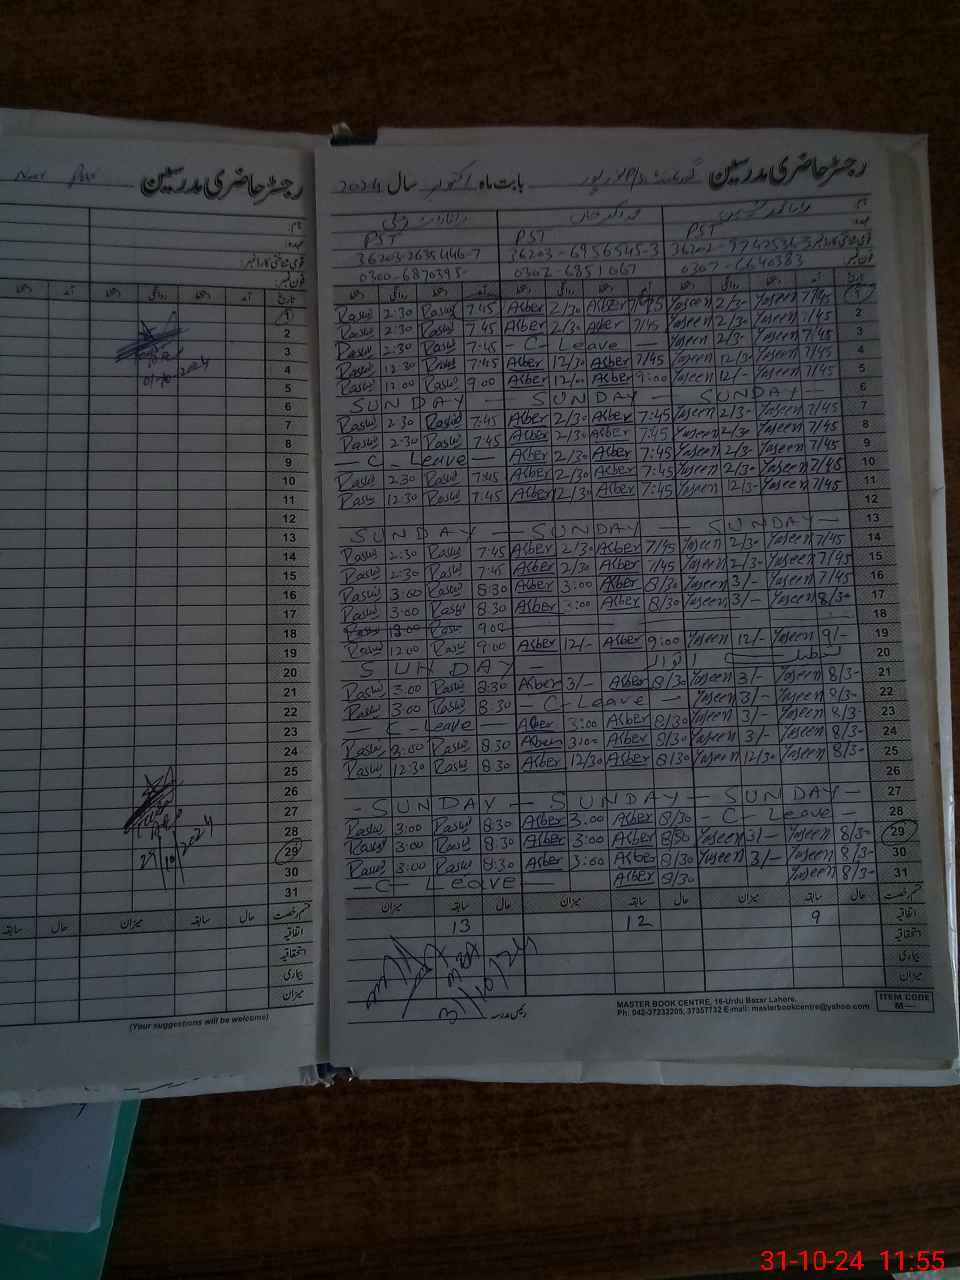 رجسٹر حاضری مدرسین
رجسٹر حاضری مدرسین گورنمنٹ P/S نور پور بابت ماہ اکتوبر سال 2024
نام:
عہدہ: PST PST PST
قومی شناختی کارڈ نمبر: 36203-6956545-3 36203-2635446-7
فون نمبر: 0307-6640383 0302-6851067 0300-6870395-
تاریخ آمد دستخط روانگی دستخط آمد دستخط روانگی دستخط آمد دستخط روانگی دستخط
1 7/45 Yaseen 2/3- Yaseen 7/45 Akber 2/30 Akber 7:45 Rasul 2:30 Rasul
2 7/45 Yaseen 2/3- Yaseen 7/45 Akber 2/30 Akber 7:45 Rasul 2:30 Rasul
3 7/45 Yaseen 2/3- Yaseen - C- Leave - 7:45 Rasul 2:30 Rasul
4 7/45 Yaseen 12/3- Yaseen 7/45 Akber 12/30 Akber 7:45 Rasul 12:30 Rasul
5 7/45 Yaseen 12/- Yaseen 9:00 Akber 12/00 Akber 9:00 Rasul 12:00 Rasul
6 SUNDAY - SUNDAY - SUNDAY -
7 7/45 Yaseen 2/3- Yaseen 7:45 Akber 2/30 Akber 7:45 Rasul 2:30 Rasul
8 7/45 Yaseen 2/30 Yaseen 7:45 Akber 2/30 Akber 7:45 Rasul 2:30 Rasul
9 7/45 Yaseen 2/3- Yaseen 7:45 Akber 2/30 Akber - C- Leave -
10 7/45 Yaseen 2/3- Yaseen 7:45 Akber 2/30 Akber 7:45 Rasul 2:30 Rasul
11 7/45 Yaseen 12/3- Yaseen 7:45 Akber 12/30 Akber 7:45 Rasul 12:30 Rasul
12
13 SUNDAY - SUNDAY - SUNDAY -
14 7/45 Yaseen 2/3- Yaseen 7/45 Akber 2/30 Akber 7:45 Rasul 2:30 Rasul
15 7/45 Yaseen 2/3- Yaseen 7/45 Akber 2/30 Akber 7:45 Rasul 2:30 Rasul
16 7/45 Yaseen 3/- Yaseen 8/30 Akber 3:00 Akber 8:30 Rasul 3:00 Rasul
17 8/3- Yaseen 3/- Yaseen 8/30 Akber 3:00 Akber 8:30 Rasul 3:00 Rasul
18 Rasul
19 9/- Yaseen 12/- Yaseen 9:00 Akber 12/- Akber 9:00 Rasul 12:00 Rasul
20 SUNDAY - تعطیل اتوار
21 8/3- Yaseen 3/- Yaseen 8/30 Akber 3/- Akber 8:30 Rasul 3:00 Rasul
22 8/3- Yaseen 3/- Yaseen - C- Leave - 8:30 Rasul 3:00 Rasul
23 8/3- Yaseen 3/- Yaseen 8/30 Akber 3:00 Akber - C- Leave -
24 8/3- Yaseen 3/- Yaseen 8/30 Akber 3:00 Akber 8:30 Rasul 3:00 Rasul
25 8/3- Yaseen 12/30 Yaseen 8/30 Akber 12/30 Akber 8:30 Rasul 12:30 Rasul
26
27 - SUNDAY - SUNDAY - SUNDAY -
28 - C- Leave - 8/30 Akber 3:00 Akber 8:30 Rasul 3:00 Rasul
29 8/3- Yaseen 3/- Yaseen 8/30 Akber 3:00 Akber 8:30 Rasul 3:00 Rasul
30 8/3- Yaseen 3/- Yaseen 8/30 Akber 3:00 Akber 8:30 Rasul 3:00 Rasul
31 8/3- Yaseen 8/30 Akber - C- Leave -
قسم رخصت حال سابقہ میزان حال سابقہ میزان حال سابقہ میزان
اتفاقیہ 9 12 13
استحقاقیہ
بیماری
میزان
31/10/24
MASTER BOOK CENTRE, 16-Urdu Bazar Lahore.
Ph: 042-37232205, 37357732 E-mail: masterbookcentre@yahoo.com
ITEM CODE
M—
نام:
عہدہ:
قومی شناختی کارڈ نمبر:
فون نمبر:
تاریخ آمد دستخط روانگی دستخط آمد
1
2
3
4
5
6
7
8
9
10
11
12
13
14
15
16
17
18
19
20
21
22
23
24
25
26
27
28
29
30
31
01-10-2024
29/10/2024
قسم رخصت حال سابقہ میزان حال سابقہ
اتفاقیہ
استحقاقیہ
بیماری
میزان
(Your suggestions will be welcome)
31-10-24 11:55